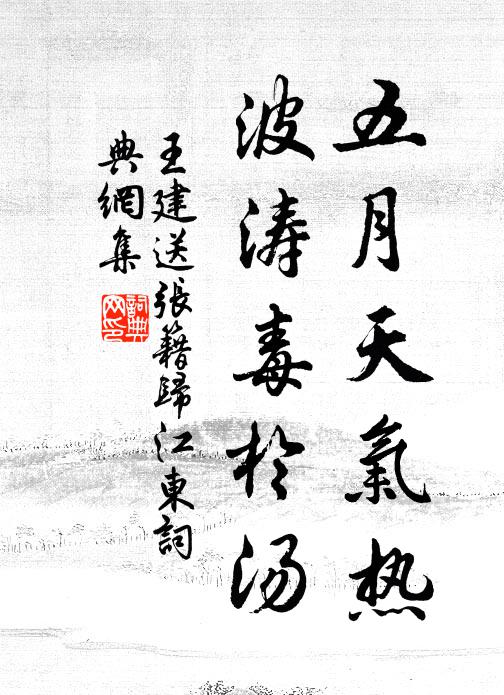 五月天氣热
波涛毒於汤
王建送張籍歸江東詞
典網集
詞典网印